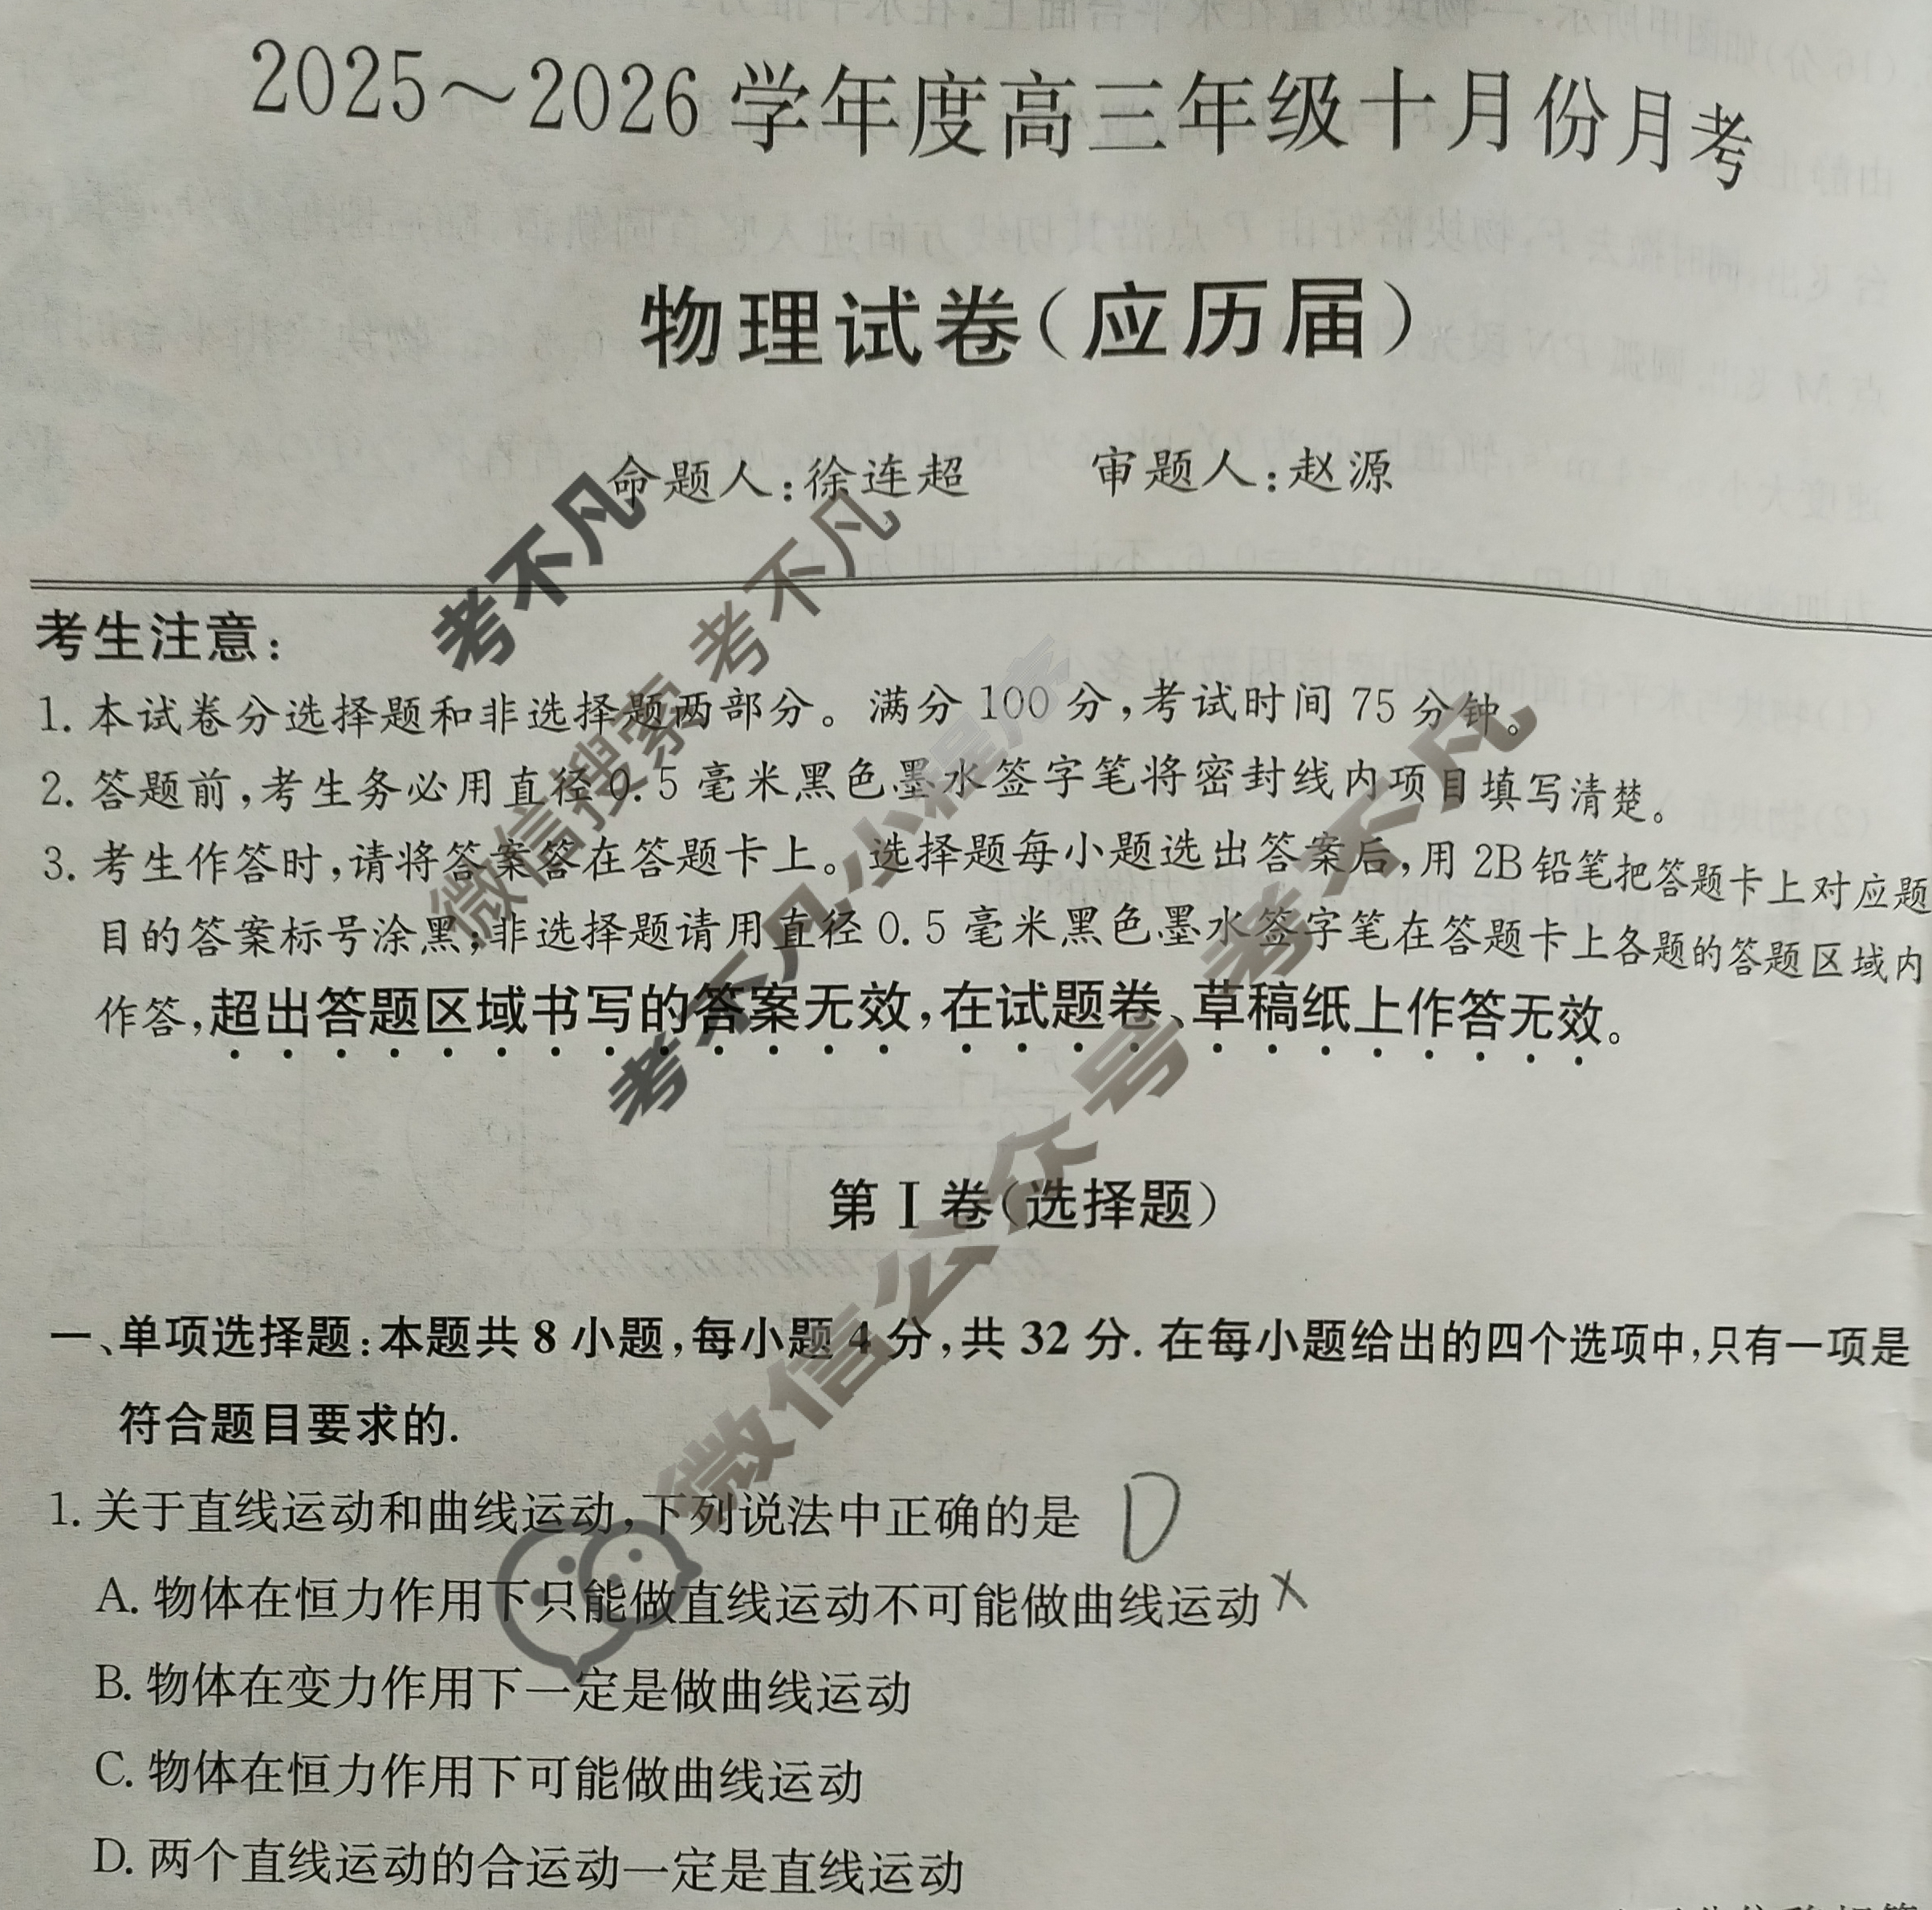 2025～2026学年度高三年级十月份月考
物理试卷（应历届）
命题人：徐连超 审题人：赵源
考生注意：
1. 本试卷分选择题和非选择题两部分。满分100分，考试时间75分钟。
2. 答题前，考生务必用直径0.5毫米黑色墨水签字笔将密封线内项目填写清楚。
3. 考生作答时，请将答案答在答题卡上。选择题每小题选出答案后，用2B铅笔把答题卡上对应题
目的答案标号涂黑；非选择题请用直径0.5毫米黑色墨水签字笔在答题卡上各题的答题区域内
作答，超出答题区域书写的答案无效，在试题卷、草稿纸上作答无效。
考不凡
微信搜索 考不凡
考不凡小程序
微信公众号 考不凡
第Ⅰ卷（选择题）
一、单项选择题：本题共8小题，每小题4分，共32分. 在每小题给出的四个选项中，只有一项是
符合题目要求的.
1. 关于直线运动和曲线运动，下列说法中正确的是 D
A. 物体在恒力作用下只能做直线运动不可能做曲线运动 ×
B. 物体在变力作用下一定是做曲线运动
C. 物体在恒力作用下可能做曲线运动
D. 两个直线运动的合运动一定是直线运动